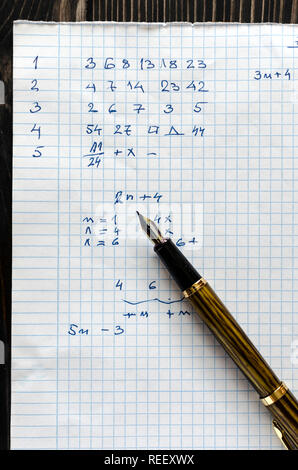 1 3 6 8 13 18 23
2 4 7 14 23 42
3 2 6 7 3 5
4 54 27 □ △ 44
5 11/24 + x −
3n+4
2n+4
n = 1 4x
n = 4 x
n = 6 6+
4 6
+n +n
5n − 3
alamy
Image ID: REEXWX
www.alamy.com